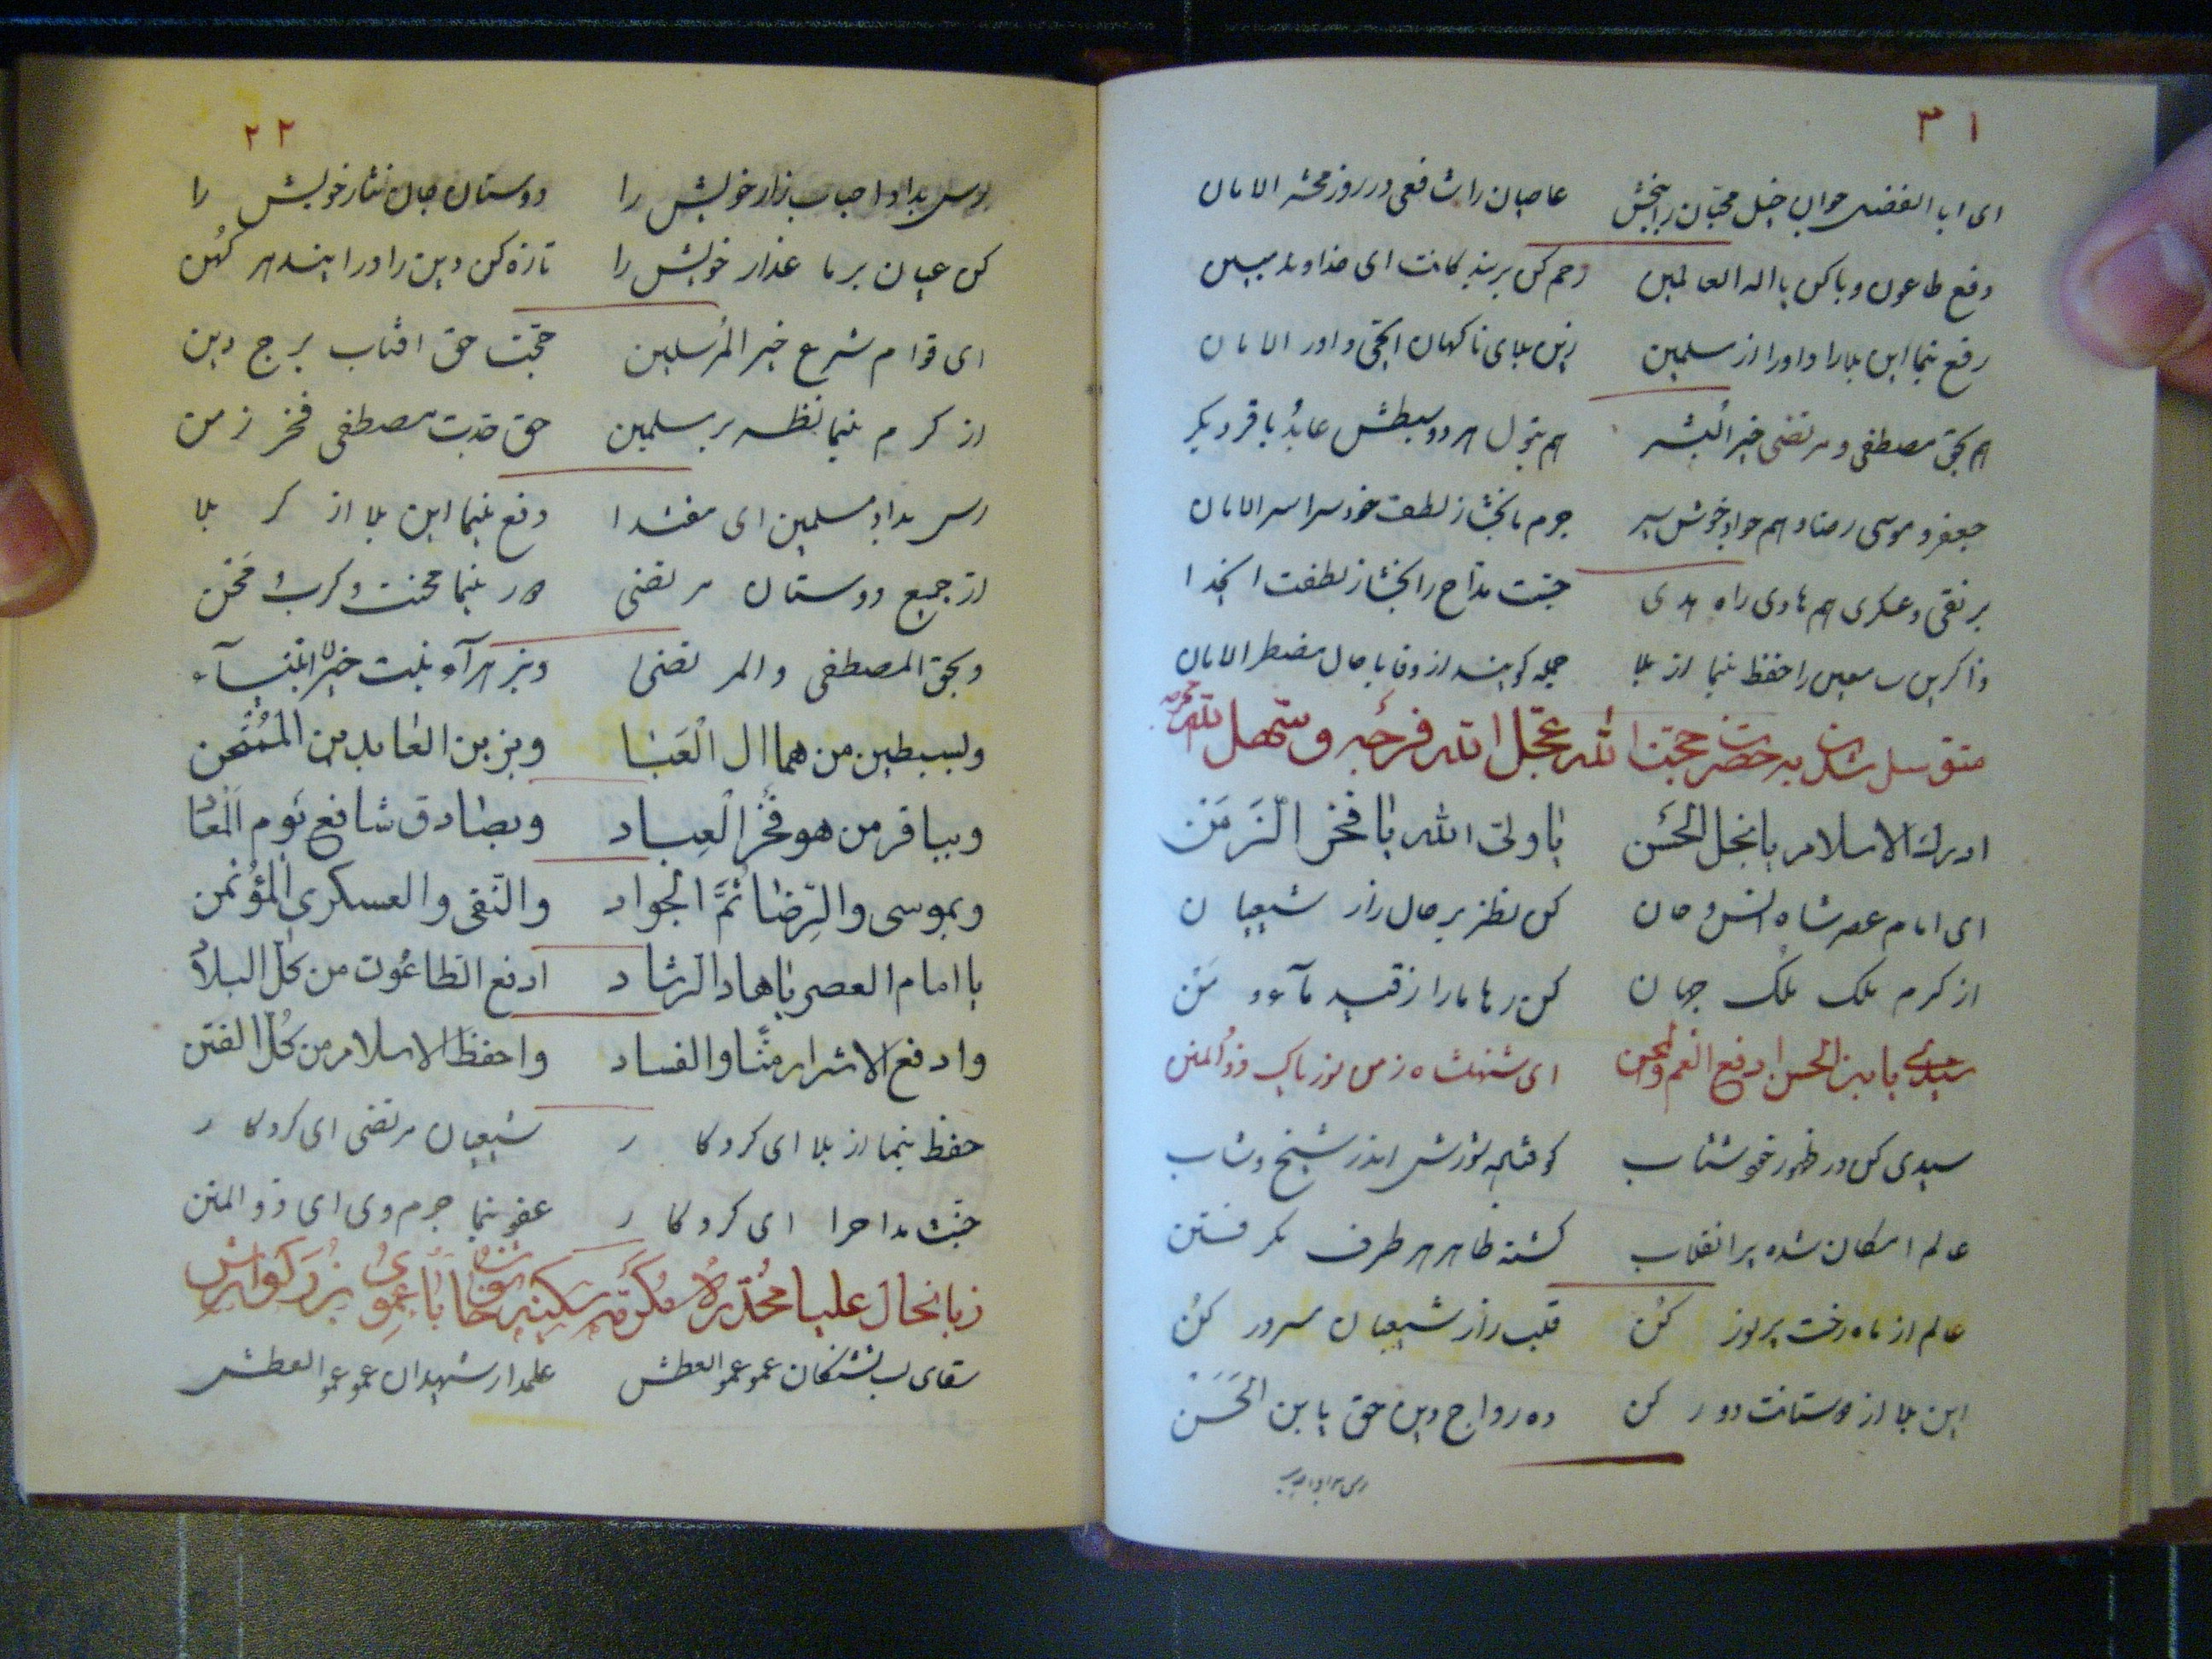 ۳۱
ای ابا الفضل جوان خیل محبّان را ببخش عاصیان را شافعی در روز محشر الامان
دفع طاعون و وبا کن یا اله العالمین رحم کن بر بندگانت ای خداوند مبین
رفع بنما این بلا را داورا از مسلمین زین بلای ناگهان ایحیّ داور الامان
هم بحق مصطفی و مرتضی خیر البشر هم بتول هر دو سبطش عابد باقر دیگر
جعفر و موسی رضا و هم جواد خوش سیر جرم ما بخشا ز لطف خود سراسر الامان
بر نقی و عسکری هم هادی راه هدی جنّت مدّاح را بخشا ز لطفت ایخدا
ذاکرین سامعین را حفظ بنما از بلا جمله گویند از وفا با حال مضطر الامان
متوسل شدن به حضرت حجّت الله عجّل الله فرجه و سهّل الله مخرجه
ادرك الاسلام یا نجل الحَسَن یا ولیّ الله یا فخر الزَمَن
ای امام عصر شاه انس و جان کن نظر بر حال زار شیعیان
از کرم ملک ملک جهان کن رها ما را ز قید ماء و مَن
سیدی یا بن الحسن ادفع الغم والمحن ای شهنشاه زمن نور پاک ذو المنن
سیدی کن در ظهور خود شتاب
عالم امکان شده پر انقلاب گشته ظاهر هر طرف مکر فتن
عالم از ماه رخت پر نور کُن قلب زار شیعیان مسرور کُن
این بلا از دوستانت دور کن ده رواج دین حق یا بن الحَسَن
رس بداد احباب
۲۲
رس بداد احباب زار خویش را دوستان جان نثار خویش را
کن عیان بر ما عذار خویش را تازه کن دین را درایندهر کُهن
ای قوام شرع خیر المرُسلین حجّت حق افتاب برج دین
از کرم بنما نظر بر مسلمین حق جدت مصطفی فخر زمن
رس بداد مسلمین ای مقتدا دفع بنما این بلا از کربلا
از جمیع دوستان مرتضی دور بنما محنت و کرب و محَن
و بحق المصطفی والمرتضی و بزهرآء بنت خیر الانبیآء
و لسبطین من هما ال الْعَبا و بزین العابدین المُمْتَحن
و بباقر من هو فَخْر الْعِباد و بصادق شافع یَوم المَعاد
و بموسی والرِّضا ثمَّ الجواد والنّقی والعسکری المُؤْتمن
یا امام العصر یا هاد الرشاد ادفع الطاعُون من کلّ البلاد
وادفع الاشرار منّا والفساد واحفظ الاسلام من کُلّ الفتن
حفظ بنما از بلا ای کردکار شیعیان مرتضی ای کردکار
جنّت مداحرا ای کردکار عفو بنما جرم وی ای ذو المنن
زبانحال علیا مخدّرهُ مکرّمه سکینه خاتون با عموی بزرگوارش
سقای لب تشنگان عمو عمو العطش علمدار شهیدان عمو عمو العطش